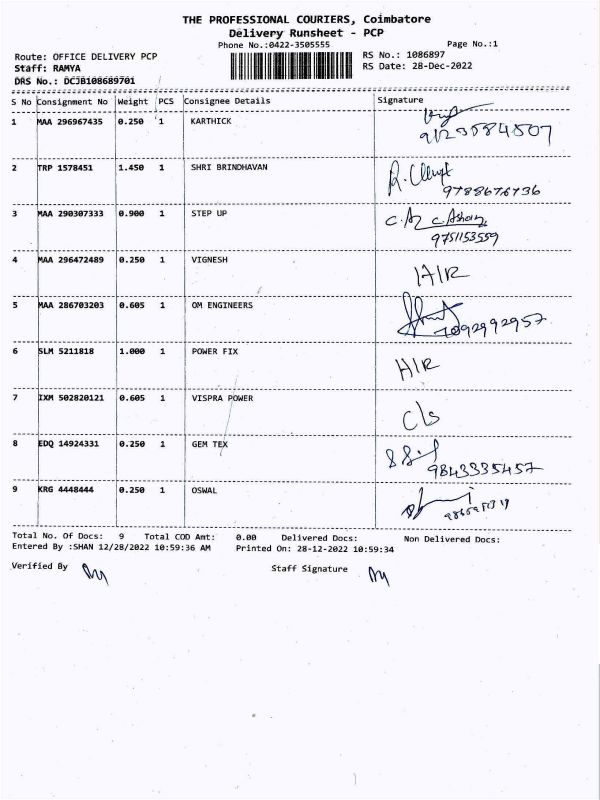 THE PROFESSIONAL COURIERS, Coimbatore
Delivery Runsheet - PCP
Phone No.:0422-3505555 Page No.:1
Route: OFFICE DELIVERY PCP RS No.: 1086897
Staff: RAMYA RS Date: 28-Dec-2022
DRS No.: DCJB108689701
S No Consignment No Weight PCS Consignee Details Signature
1 MAA 296967435 0.250 1 KARTHICK
9123584507
2 TRP 1578451 1.450 1 SHRI BRINDHAVAN
9788676736
3 MAA 290307333 0.900 1 STEP UP
9751153559
4 MAA 296472489 0.250 1 VIGNESH H/R
5 MAA 286703203 0.605 1 OM ENGINEERS
7092992957
6 SLM 5211818 1.000 1 POWER FIX H/R
7 IXM 502820121 0.605 1 VISPRA POWER C/s
8 EDQ 14924331 0.250 1 GEM TEX
9843335457
9 KRG 4448444 0.250 1 OSWAL
Total No. Of Docs: 9 Total COD Amt: 0.00 Delivered Docs: Non Delivered Docs:
Entered By :SHAN 12/28/2022 10:59:36 AM Printed On: 28-12-2022 10:59:34
Verified By Staff Signature